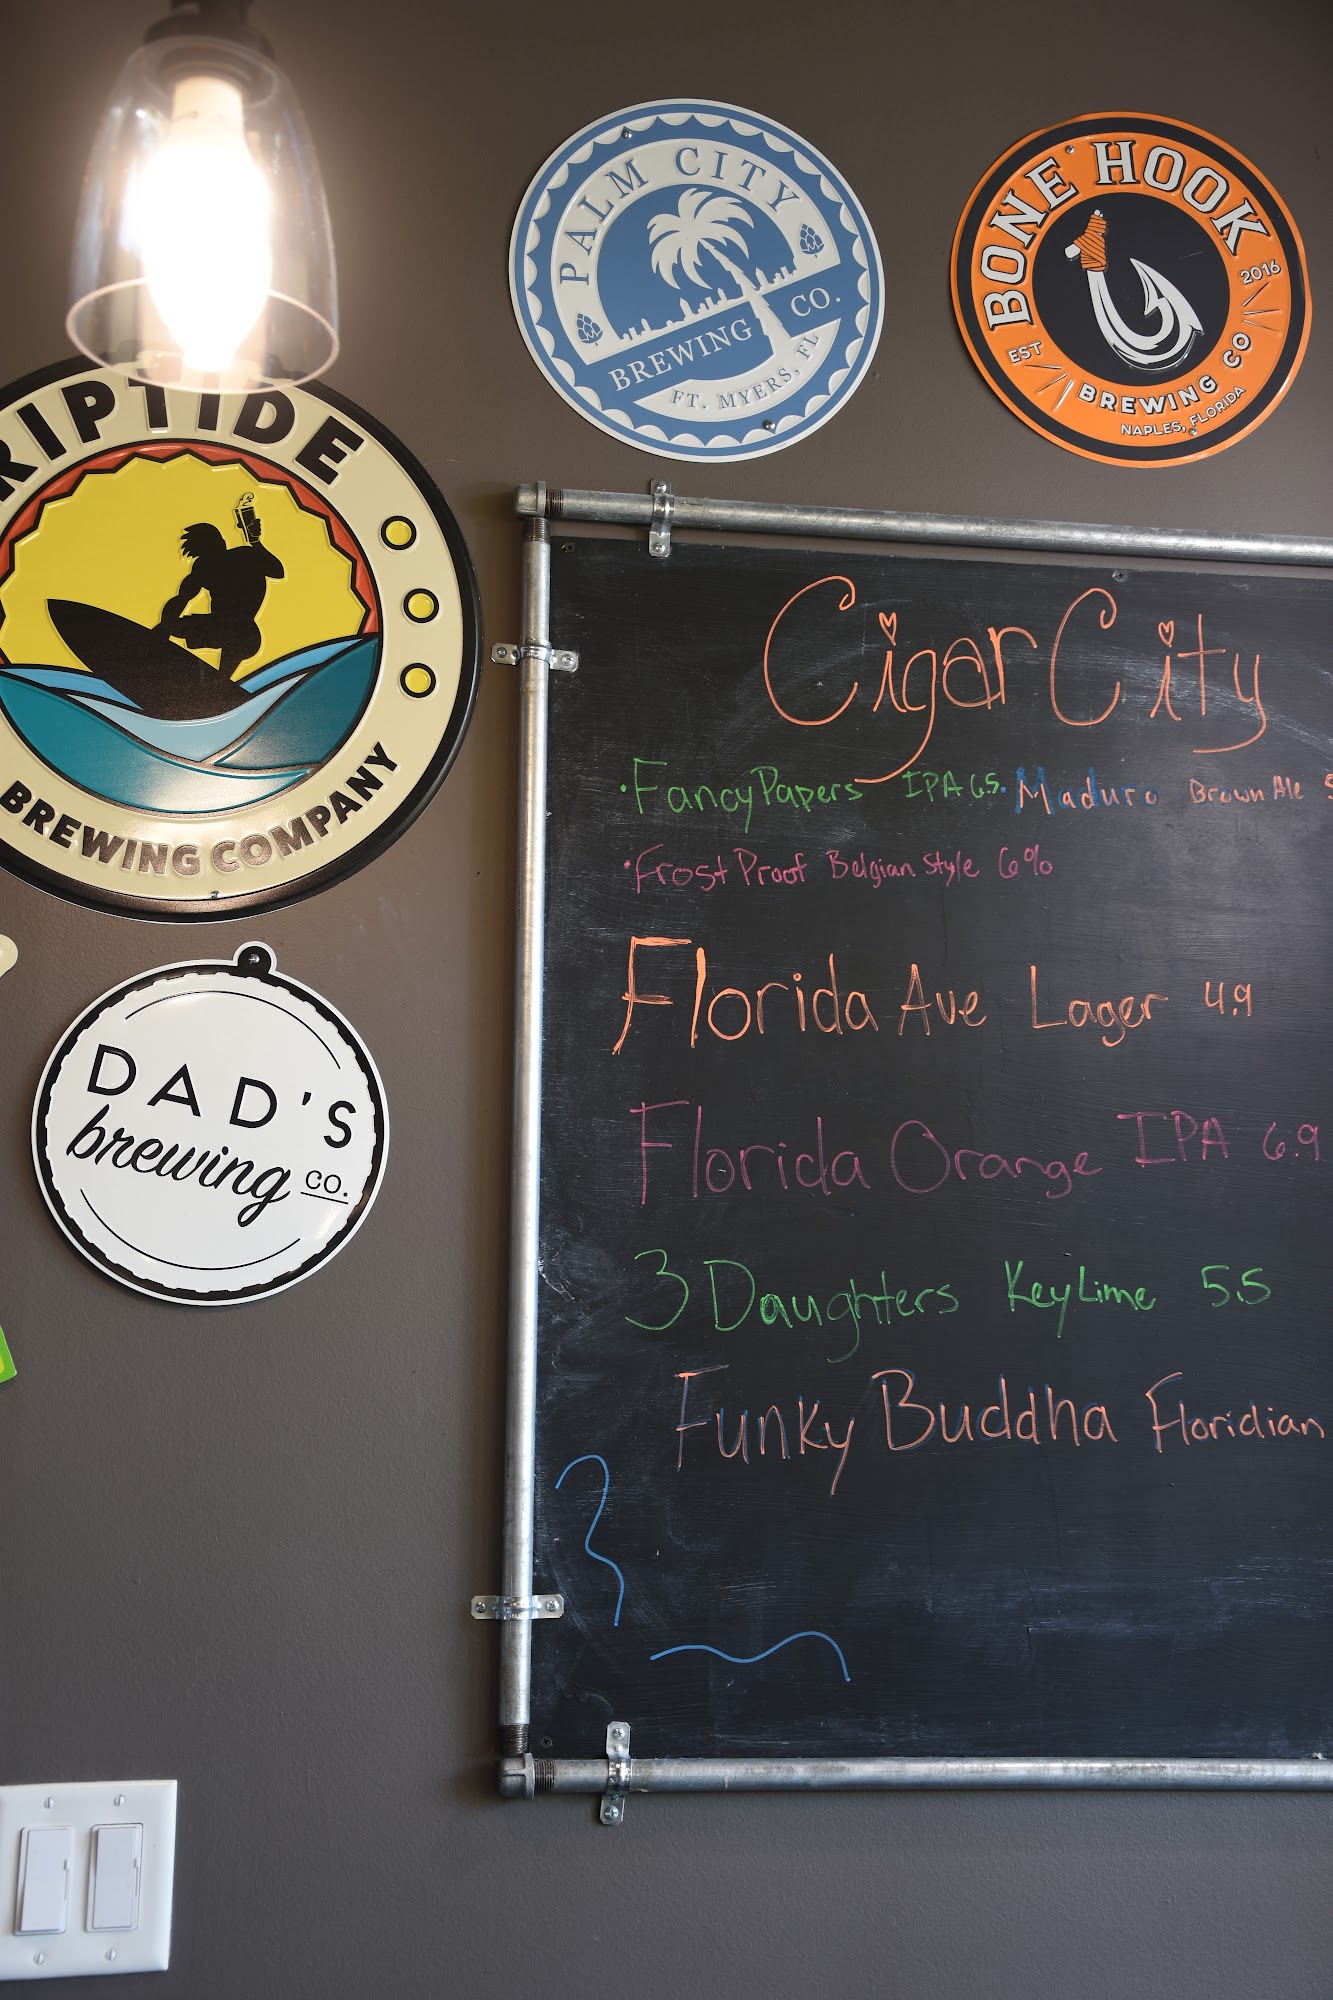 PALM CITY
BREWING CO.
FT. MYERS, FL
BONE HOOK
EST 2016
BREWING CO
NAPLES, FLORIDA
RIPTIDE
BREWING COMPANY
DAD'S
brewing co.
Cigar City
·Fancy Papers IPA 6.5 ·Maduro Brown Ale 5
·Frost Proof Belgian Style 6%
Florida Ave Lager 4.9
Florida Orange IPA 6.9
3 Daughters Key Lime 5.5
Funky Buddha Floridian